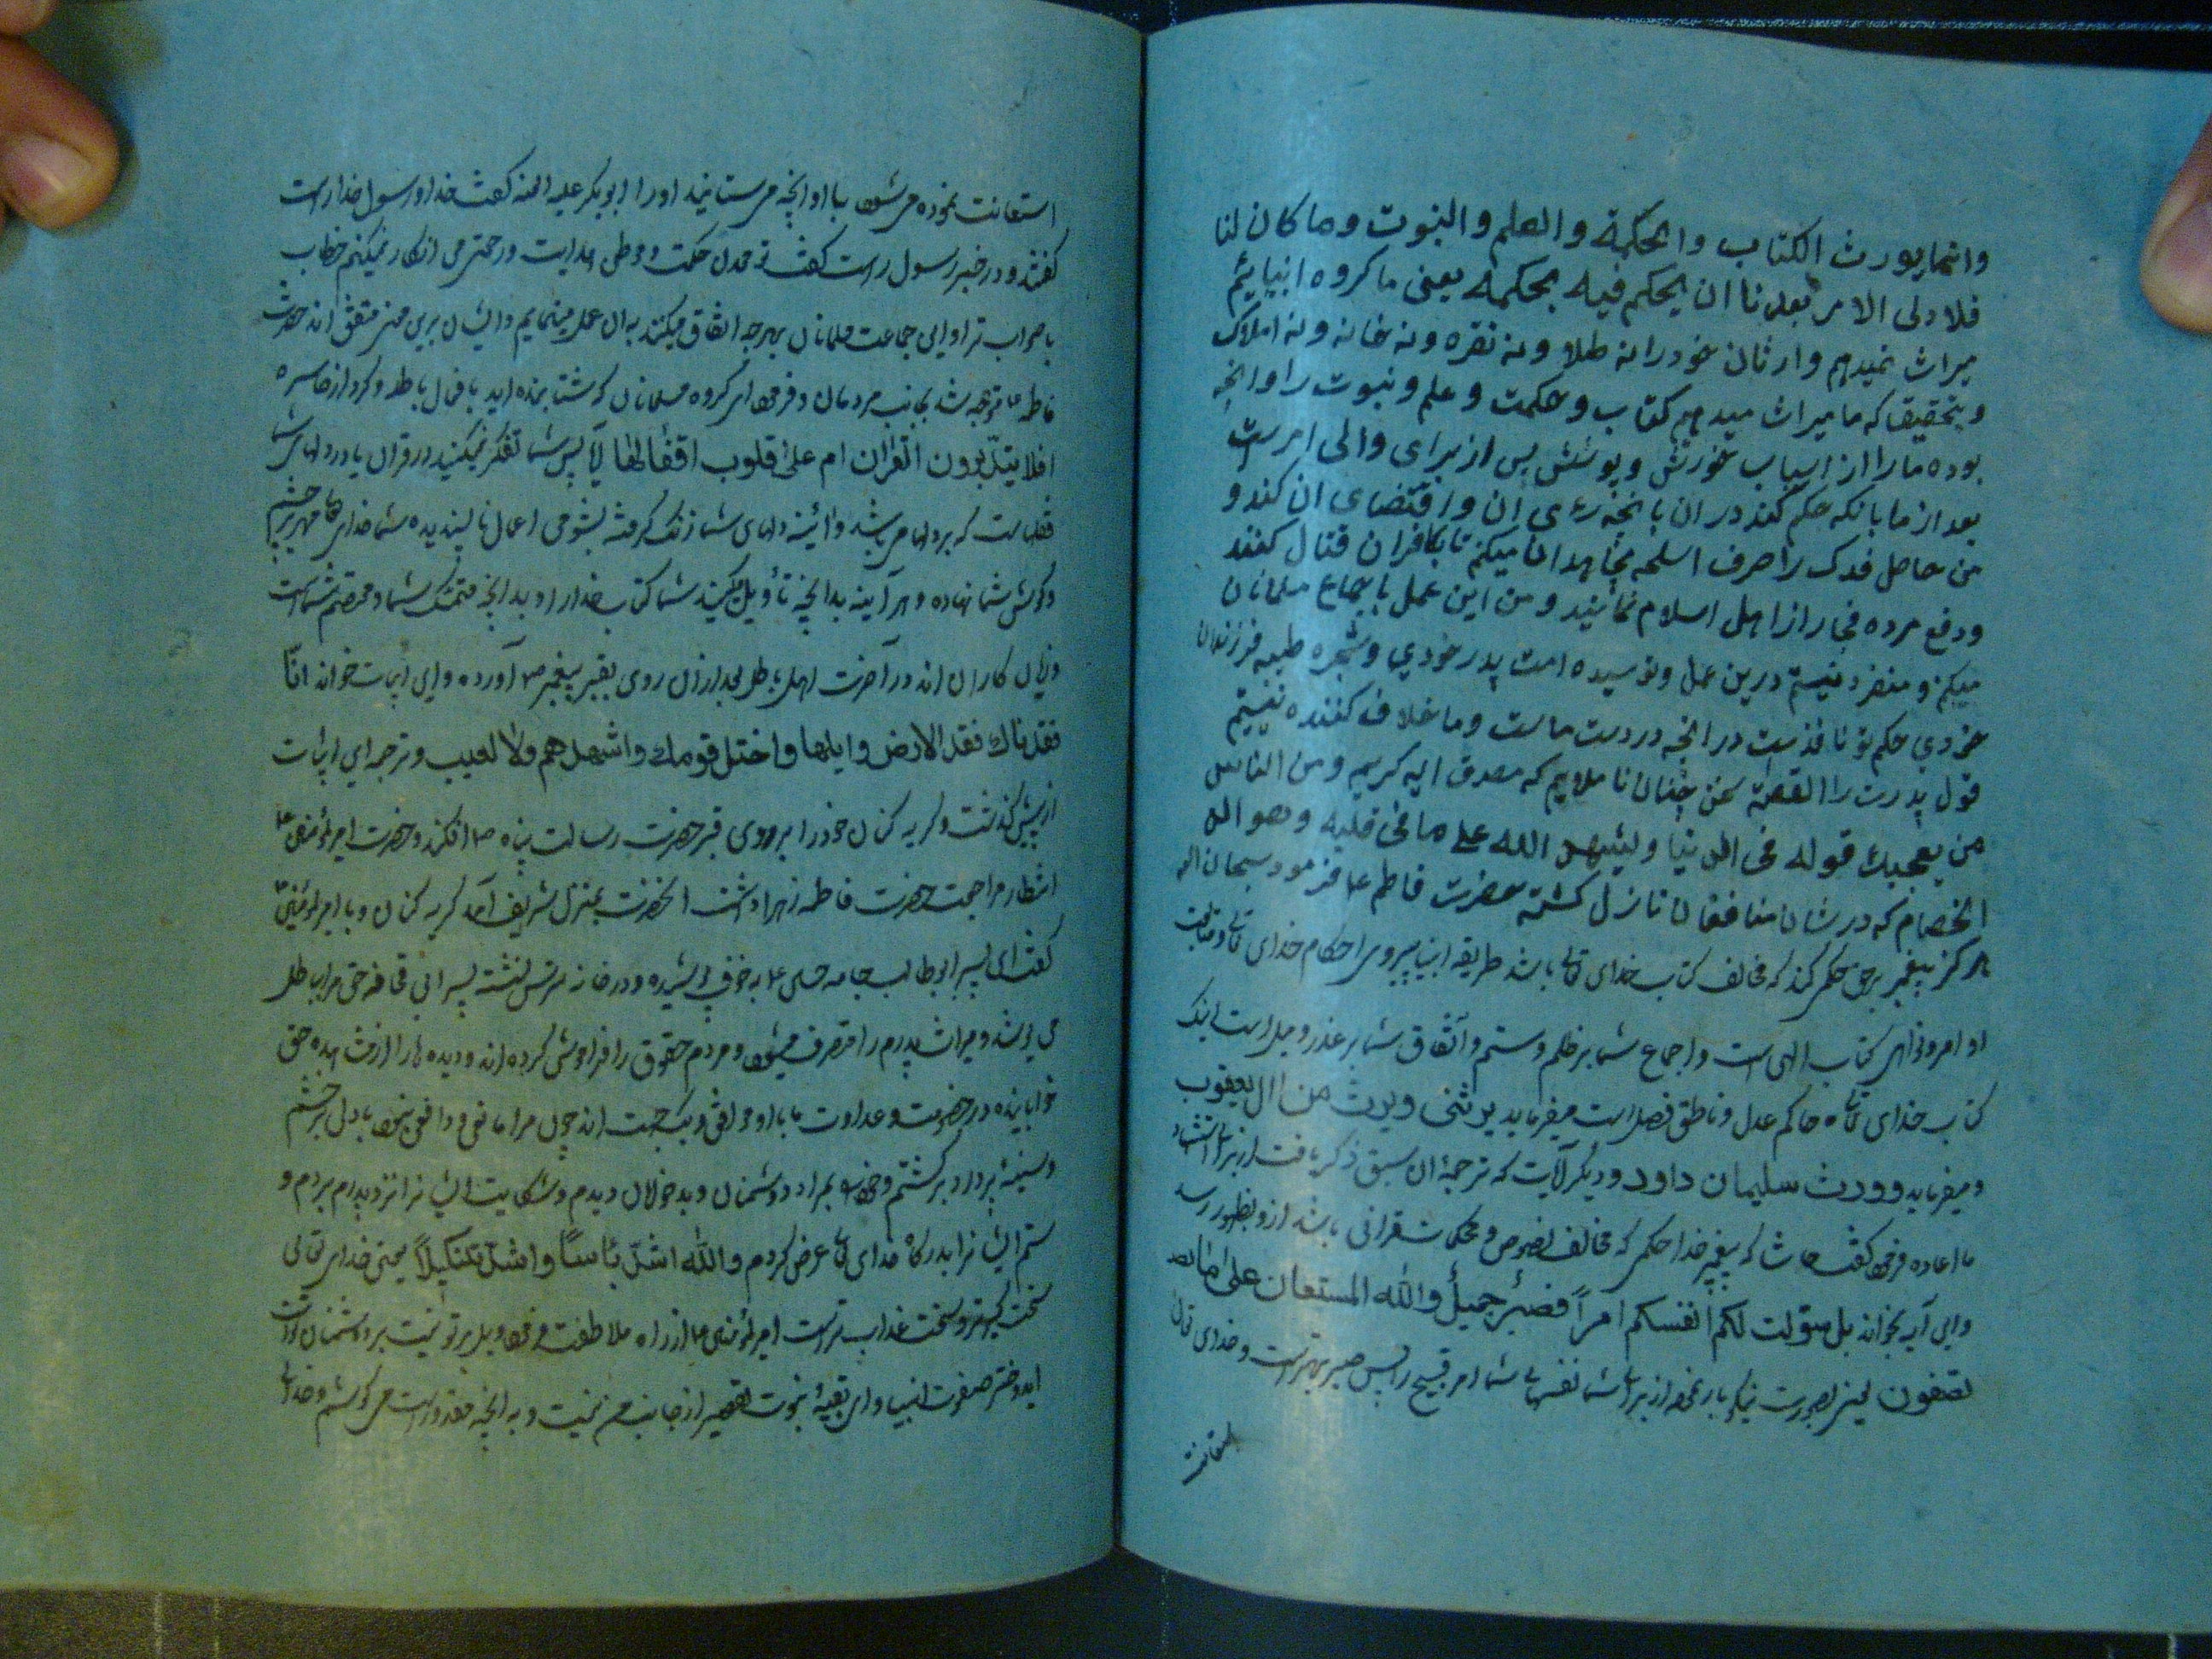 وانما یورث الکتاب والحکمة والعلم والنبوت وما کان لنا
فلاولی الامر بعدنا ان یحکم فیه بحکمه یعنی ما کروه انبیائیم
میراث نمیدهیم وارثان خود را نه طلا و نه نقره و نه خانه و نه املاک
و بتحقیق که ما میراث میدهیم کتاب و حکمت و علم و نبوت را و انچه
بوده ما را از اسباب خورش و پوشش پس از برای والی امرست
بعد از ما بانکه حکم کند در ان بانچه رءی ان واقتضای ان کند و
من حاصل فدک را صرف اسلحه مجاهدان میکنم تا بکافران قتال کنند
ودفع مرده فجار از اهل اسلام نمایند و من این عمل باجماع مسلمانان
میکنم و منفرد نیستم درین عمل وتو سیده امت پدر خودی و شجره طیبه فرزندان
خودی حکم تو نافذست در انچه در دست ماست وما خلاف کننده نیستیم
قول پدرت را القصة سخن چنان نا ملایم که مصدق ایه کریم ومن الناس
من یعجبك قوله فی الدنیا ویشهد الله علی ما فی قلبه وهو الد
الخصام که در شان منافقان نازل کشته حضرت فاطمه ع فرمود سبحان الله
هرکز پیغمبر برحق حکم نکند که مخالف کتاب خدای تعا باشد طریقه انبیا پیروی احکام خدای تعا و متابعت
اوامر و نواهی کتاب الهی است و اجماع شما بر ظلم وستم و اتفاق شما بر عذر و حیله است اینک
کتاب خدای تعا که حاکم عدل و ناطق فصل است میفرماید یرثنی ویرث من ال یعقوب
ومیفرماید وورث سلیمان داود و دیکر آیات که ترجمه ان سبق ذکر یافت از برای استشهاد
ما اعاده فرمود کفت حاشا که پیغمبر خدا حکمی که مخالف نصوص و محکمات قرانی باشد ازو بظهور رسد
واین آیه بخواند بل سولت لکم انفسکم امراً فصبرٌ جمیلٌ والله المستعان علی ما
تصفون یعنی بصورت نیکو باز نمود از برای شما نفسهای شما امر قبیح را پس صبر بهترست و خدای تعالی
استعانت
استعانت نموده می شود با او انچه می ستانید او را ابوبکر علیه العنه کفت خدا و رسول خدا راست
کفتند و دختر رسول راست کفت تو معدن حکمت و موطن هدایت و رحمتی من انکار نمیکنم خطاب
با صواب ترا و این جماعت مسلمانان بهرچه اتفاق میکنند بدان عمل مینمایم و ایشان برین معنی متفق اند حضرت
فاطمه ع متوجه شد بجانب مردمان و فرمود ای کروه مسلمانان که شتابنده اید باقوال باطله وکردار خاسره
افلا یتدبرون القرآن ام علی قلوب اقفالها آیا پس شما تفکر نمیکنید در قران یا در دلهای شما
قفلهاست که بر دلها می باشد و آئینه دلهای شما زنک کرفته بشومی اعمال ناپسندیده شما خدای تعا مهر بر چشم
و کوش شما نهاده و هرآینه بدانچه تأویل میکنید شما کتاب خدا را و بدانچه متمسک شما و معتصم شماست
وزیان کاران اند در آخرت اهل باطل بعد ازان روی بقبر پیغمبر ص آورده واین ابیات خواند انّا
فقدناك فقد الارض وابلها واختل قومك واشهدهم ولا تعیب و ترجمه این ابیات
از پیش کذشت و کریه کنان خود را بر روی قبر حضرت رسالت پناه ص افکند و حضرت امیرالمؤمنین ع
انتظار مراجعت حضرت فاطمه زهرا داشت انحضرت بمنزل شریف آمد کریه کنان و با امیرالمؤمنین
کفت ای پسر ابوطالب جامه خوف پوشیده و در خانه ترس نشسته پسر ابی قحافه حق مرا بباطل
می پوشد و میراث پدرم را متصرف میشود و مردم حقوق را فراموش کرده اند و دیده ها را از مشاهده حق
خوابانیده در خصومت و عداوت ما با او موافق و یکجهت اند چون مرا مانعی و دافعی نبود با دل پر خشم
و سینهٔ پر درد برکشتم و خود را بمراد دشمنان و بدخواهان دیدم و شکایت ایشانرا نزد پدرم بردم و
ستم ایشانرا بدرکاه خدای تعا عرض کردم والله اشدّ باسًا واشدّ تنکیلاً یعنی خدای تعالی
سخت کیرتر و سخت عذاب ترست امیرالمؤمنین ع از راه ملاطفت فرمود ویل بر تو نیست بر دشمنان تو است
ای دختر صفوت انبیا و ای بقیهٔ نبوت تقصیر از جانب من نیست و به انچه مقدورست می کوشم و خدای